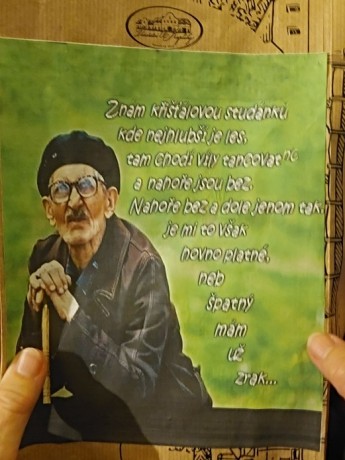 Znám křišťálovou studánku
kde nejhlubší je les,
tam chodí víly tancovat
a nahoře jsou bez.
Nahoře bez a dole jenom tak,
je mi to však
hovno platné,
neb
špatný
mám
už
zrak...